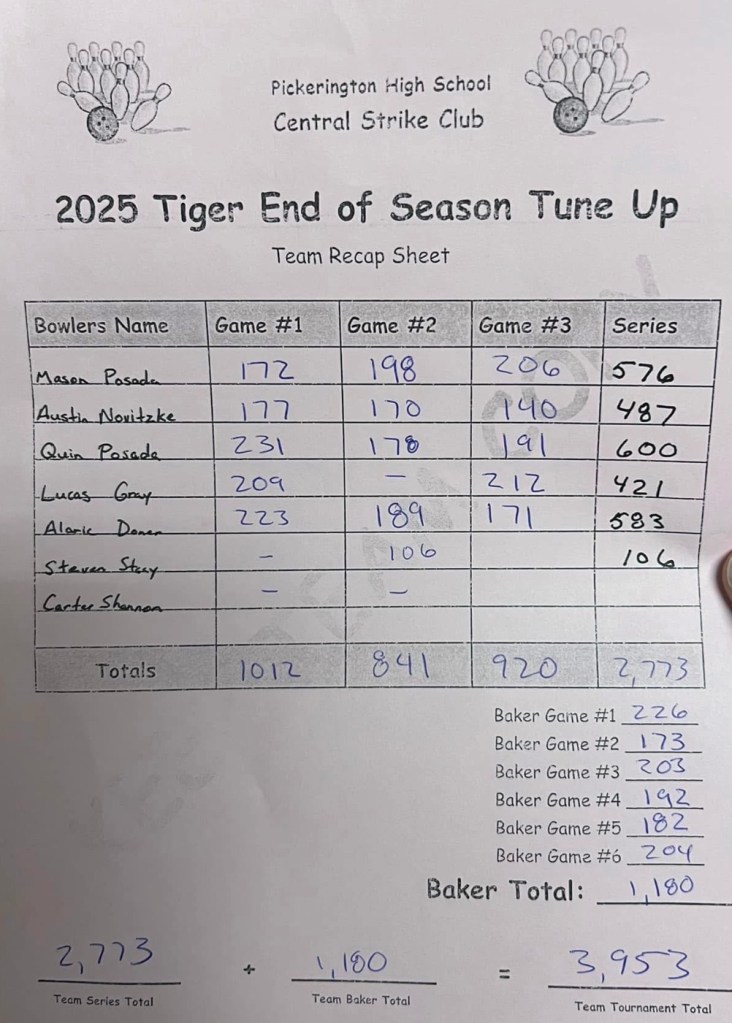 Pickerington High School
Central Strike Club
2025 Tiger End of Season Tune Up
Team Recap Sheet
Bowlers Name Game #1 Game #2 Game #3 Series
Mason Posada 172 198 206 576
Austin Novitzke 177 170 140 487
Quin Posada 231 178 191 600
Lucas Gray 209 - 212 421
Alaric 223 189 171 583
Steven - 106 106
Carter Shannon - -
Totals 1012 841 920 2,773
Baker Game #1 226
Baker Game #2 173
Baker Game #3 203
Baker Game #4 192
Baker Game #5 182
Baker Game #6 204
Baker Total: 1,180
2,773 + 1,180 = 3,953
Team Series Total Team Baker Total Team Tournament Total